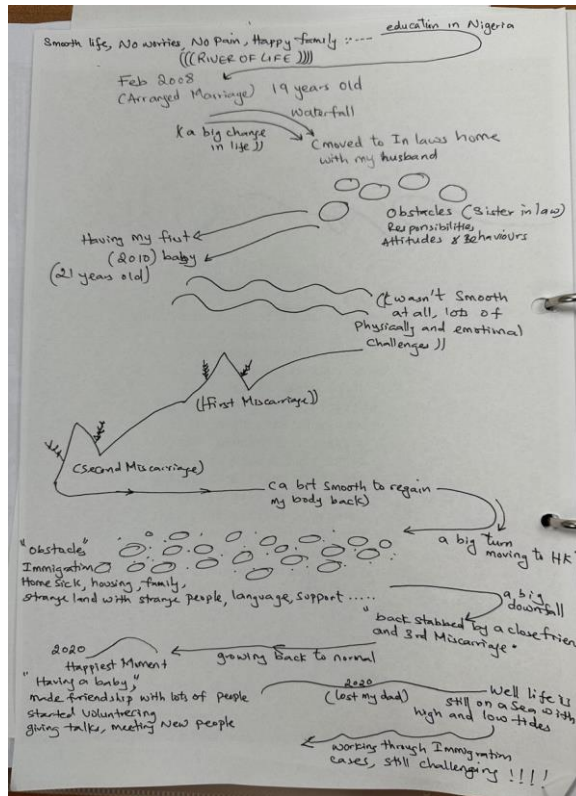 education in Nigeria
Smooth life, No worries, No Pain, Happy family :----
(((RIVER OF LIFE ))))
Feb 2008
(Arranged Marriage) 19 years old
waterfall
(a big change
in life))
(moved to In laws home
with my husband
Obstacles (Sister in law)
Responsibilities
Attitudes & Behaviours
Having my first
(2010) baby
(21 years old)
(t wasn't smooth
at all, lots of
physically and emotional
challenges))
(first Miscarriage))
(second Miscarriage)
(a bit smooth to regain
my body back)
a big turn
moving to HK
"Obstacles"
Immigration
Home sick, housing, family,
strange land with strange people, language, support .....
a big
downfall
"back stabbed by a close friend
and 3rd Miscarriage"
growing back to normal
2020
Happiest Moment
"Having a baby,"
made friendship with lots of people
started volunteering
giving talks, meeting New people
2020
(lost my dad)
Well life is
still on a sea with
high and low tides
working through Immigration
cases, still challenging !!!!